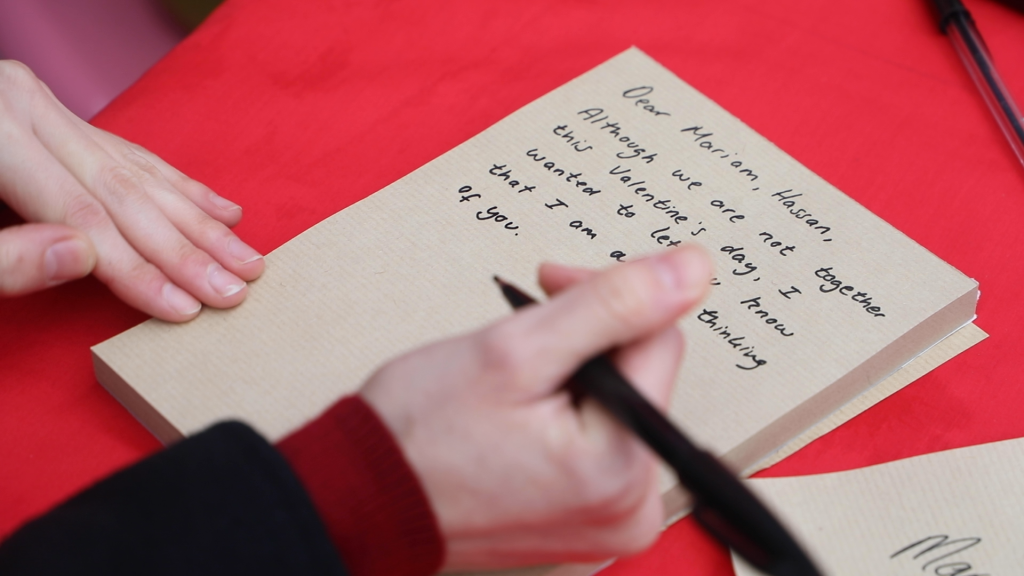 Dear Mariam, Hassan,
Although we are not together
this Valentine's day, I
wanted to let know
that I am thinking
of you.